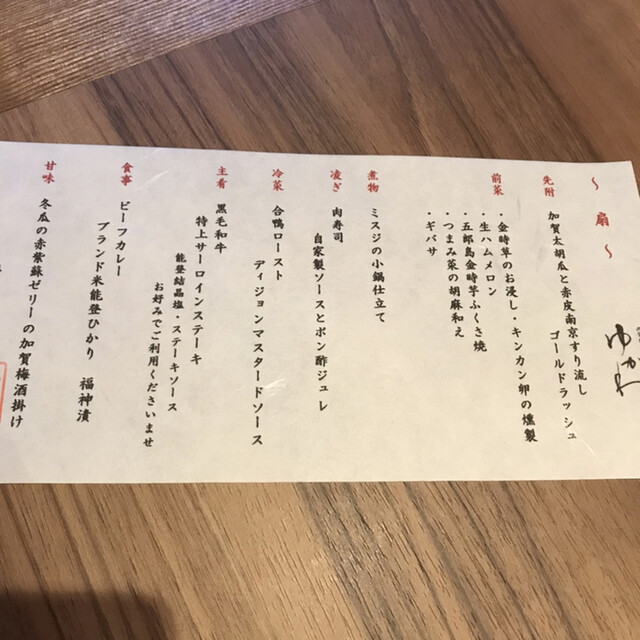 〜 扇 〜
先附
加賀太胡瓜と赤皮南京すり流し
ゴールドラッシュ
前菜
・金時草のお浸し・キンカン卵の燻製
・生ハムメロン
・五郎島金時芋ふくさ焼
・つまみ菜の胡麻和え
・ギバサ
煮物
ミスジの小鍋仕立て
凌ぎ
肉寿司
自家製ソースとポン酢ジュレ
冷菜
合鴨ロースト
ディジョンマスタードソース
主肴
黒毛和牛
特上サーロインステーキ
能登結晶塩・ステーキソース
お好みでご利用くださいませ
食事
ビーフカレー
ブランド米能登ひかり 福神漬
甘味
冬瓜の赤紫蘇ゼリーの加賀梅酒掛け